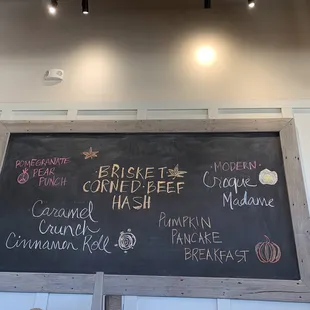 POMEGRANATE
PEAR
PUNCH
BRISKET
CORNED-BEEF
HASH
MODERN
Croque
Madame
Caramel
Crunch
Cinnamon Roll
PUMPKIN
PANCAKE
BREAKFAST